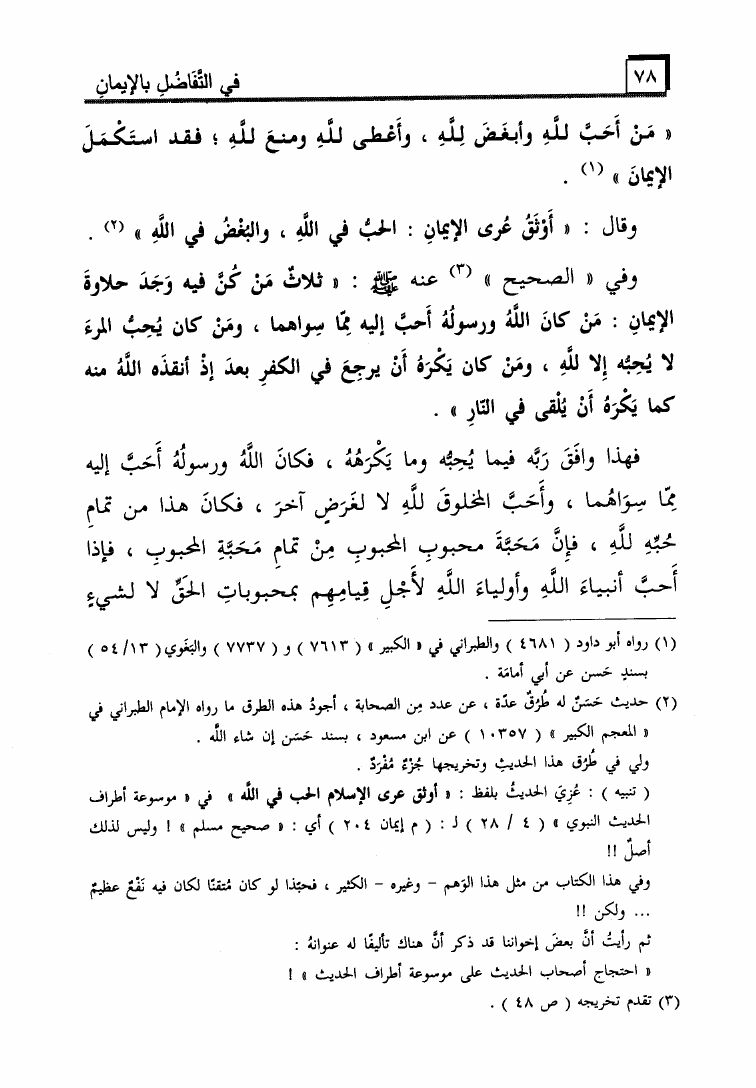 ٧٨ في التَّفَاضُلِ بالإيمانِ
« مَنْ أَحَبَّ للَّهِ وأبغَضَ لِلَّهِ ، وأَعْطى للَّهِ ومنعَ للَّهِ ؛ فقد استَكْمَلَ
الإيمانَ » (١) .
وقال : « أَوْثَقُ عُرى الإيمانِ : الحبُّ في اللَّهِ ، والبُغْضُ في اللَّهِ » (٢) .
وفي « الصحيح » (٣) عنه ﷺ : « ثلاثٌ مَنْ كُنَّ فيه وَجَدَ حلاوةَ
الإيمانِ : مَنْ كانَ اللَّهُ ورسولُهُ أحبَّ إليه مِمّا سِواهما ، ومَنْ كان يُحِبُّ المرءَ
لا يُحِبُّه إلا للَّهِ ، ومَنْ كان يَكْرَهُ أنْ يرجِعَ في الكفرِ بعدَ إذْ أنقذه اللَّهُ منه
كما يَكْرَهُ أنْ يُلْقى في النّارِ » .
فهذا وافَقَ رَبَّه فيما يُحِبُّه وما يَكْرَهُهُ ، فكانَ اللَّهُ ورسولُهُ أحَبَّ إليه
مِمّا سِوَاهُما ، وأحَبَّ المخلوقَ للَّهِ لا لغَرَضٍ آخرَ ، فكانَ هذا من تمامِ
حُبِّه للَّهِ ، فإنَّ مَحَبَّةَ محبوبِ المحبوبِ مِنْ تمامِ مَحَبَّةِ المحبوبِ ، فإذا
أحبَّ أنبياءَ اللَّهِ وأولياءَ اللَّهِ لأَجْلِ قِيامِهِم بمحبوباتِ الحَقِّ لا لشيءٍ
(١) رواه أبو داود ( ٤٦٨١ ) والطبراني في « الكبير » ( ٧٦١٣ ) و ( ٧٧٣٧ ) والبَغَوي ( ١٣/ ٥٤ )
بسندٍ حَسن عن أبي أمامَة .
(٢) حديث حَسَنٌ له طُرُقٌ عدّة ، عن عدد مِن الصحابة ، أجودُ هذه الطرق ما رواه الإمام الطبراني في
« المعجم الكبير » ( ١٠٣٥٧ ) عن ابن مسعود ، بسند حَسَن إن شاء اللَّه .
ولي في طُرُق هذا الحديثِ وتخريجها جُزْءٌ مُفْرَدٌ .
( تنبيه ) : عُزِيَ الحديثُ بلفظ : « أوثق عرى الإسلام الحب في اللَّه » في « موسوعة أطراف
الحديث النبوي » ( ٤ / ٢٨ ) لـ : ( م إيمان ٢٠٤ ) أي : « صحيح مسلم » ! وليس لذلك
أصلٌ !!
وفي هذا الكتاب من مثل هذا الوَهم - وغيره - الكثير ، فحبّذا لو كان مُتقنًا لكان فيه نَفْعٌ عظيمٌ
... ولكن !!
ثم رأيتُ أنَّ بعضَ إخواننا قد ذكر أنَّ هناك تأليفًا له عنوانهُ :
« احتجاج أصحاب الحديث على موسوعة أطراف الحديث » !
(٣) تقدم تخريجه ( ص ٤٨ ) .